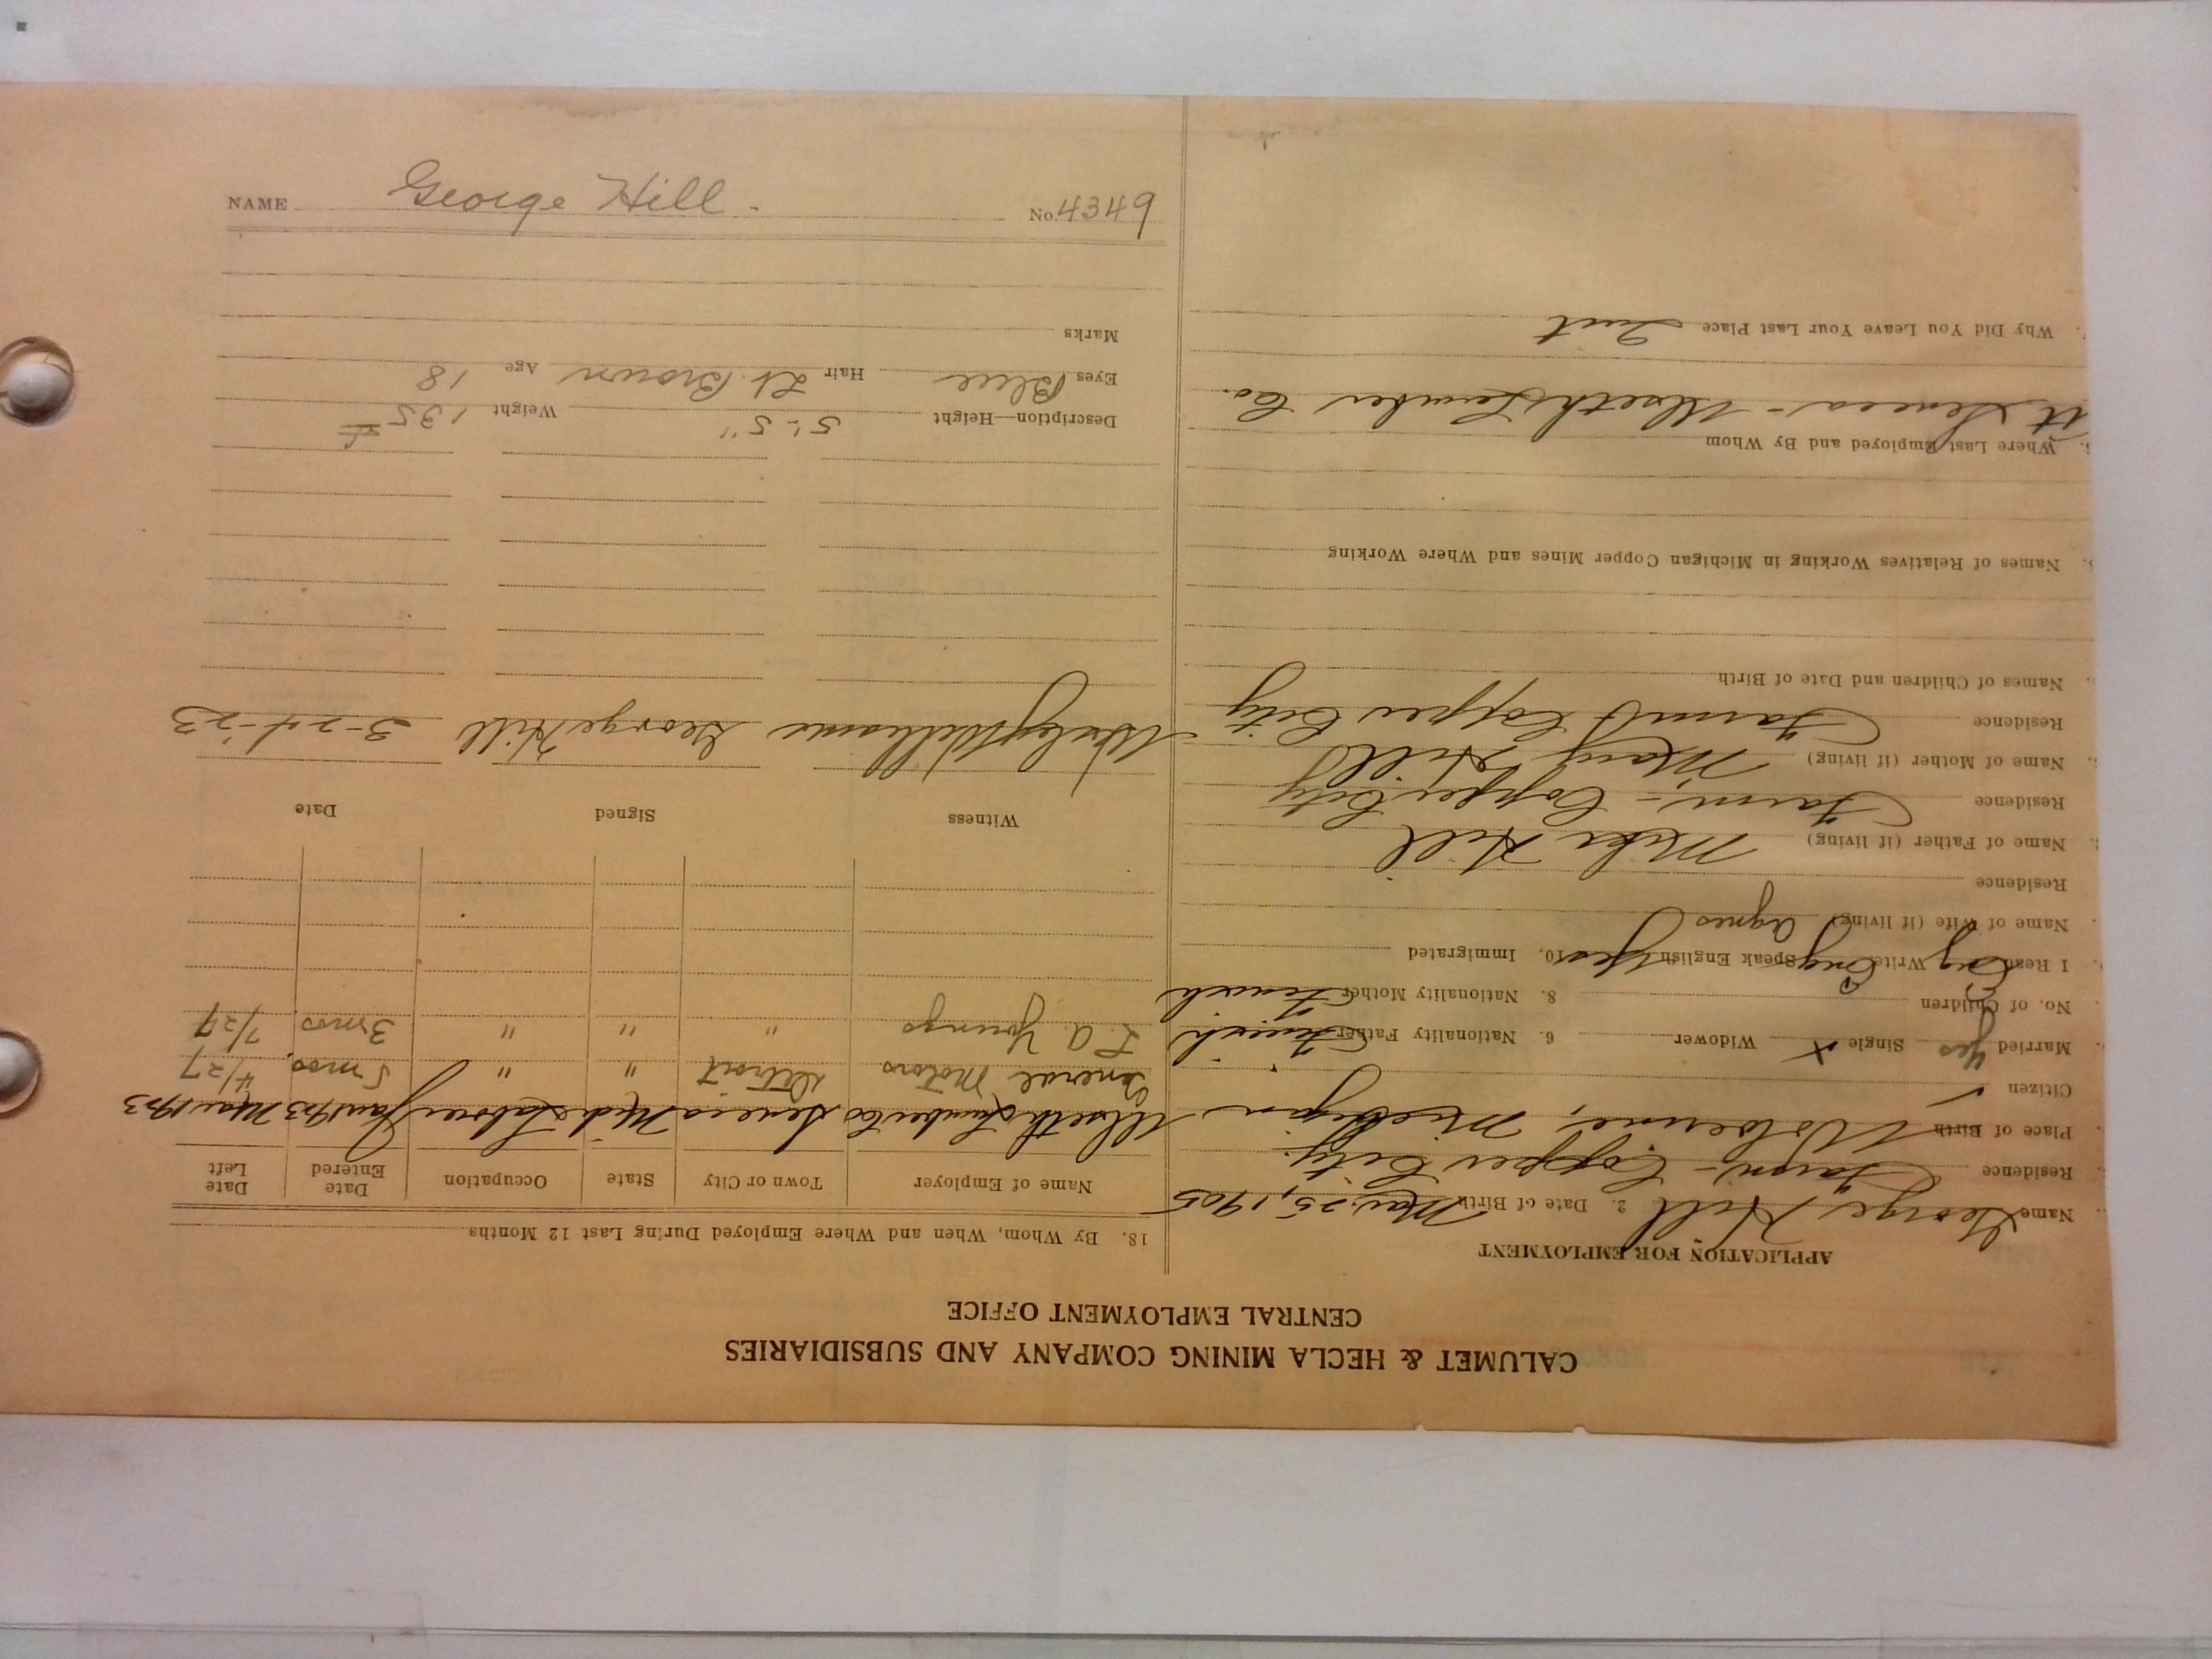 CALUMET & HECLA MINING COMPANY AND SUBSIDIARIES
CENTRAL EMPLOYMENT OFFICE
APPLICATION FOR EMPLOYMENT
Name George Hill 2. Date of Birth Mar. 25, 1905
Residence Farm - Copper City.
Place of Birth Wolverine, Michigan
Citizen ✓
Married yes Single x Widower 6. Nationality Father Finnish
No. of Children 8. Nationality Mother Finnish
I Read Eng Write Eng Speak English Yes 10. Immigrated
Name of Wife (if living) Agnes
Residence
Name of Father (if living) Hill
Residence Farm - Copper City
Name of Mother (if living) Mary Hill
Residence Farm - Copper City
Names of Children and Date of Birth
Names of Relatives Working in Michigan Copper Mines and Where Working
Where Last Employed and By Whom
At Seneca - Lumber Co.
Why Did You Leave Your Last Place Quit
18. By Whom, When and Where Employed During Last 12 Months
Name of Employer Town or City State Occupation Date Entered Date Left
Lumber Co Seneca Mich Laborer Jan 1923 Mar 1923
General Motors Detroit " " 5 mos. 4/27
L. A. Youngs " " " 3 mos 7/27
Witness Signed Date
Williams George Hill 3-24-23
Description—Height 5'-5" Weight 135#
Eyes Blue Hair Lt. Brown Age 18
Marks
NAME George Hill. No. 4349